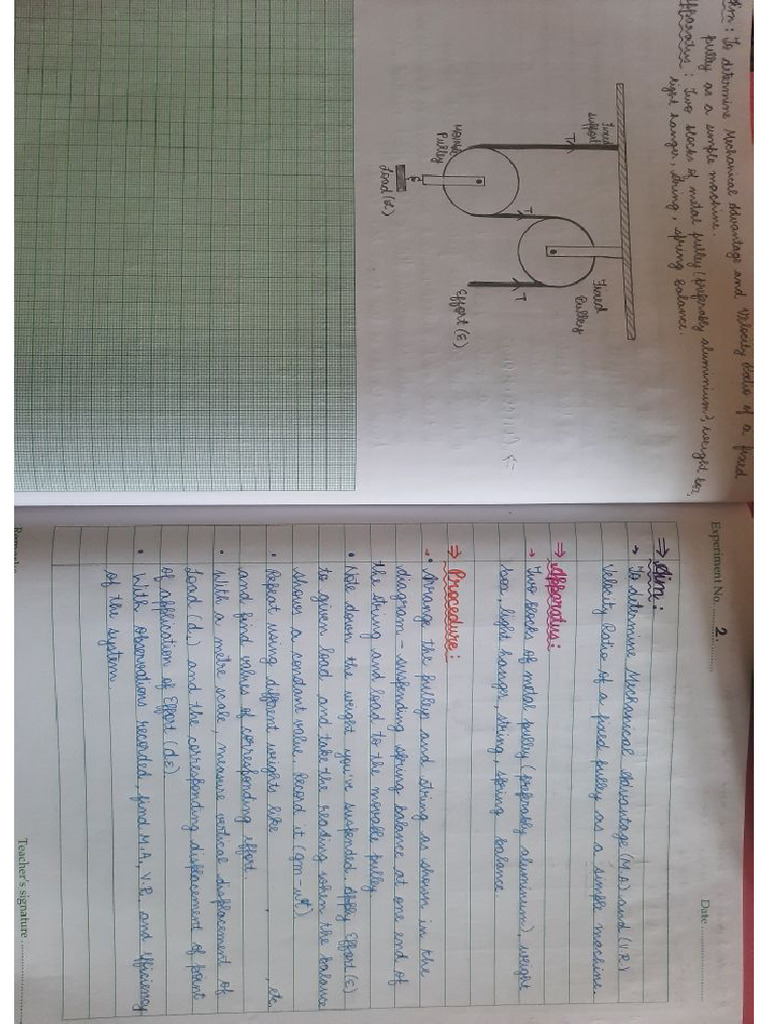 Aim : To determine Mechanical Advantage and Velocity Ratio of a fixed
pulley as a simple machine.
Apparatus : Two blocks of metal pulley (preferably aluminium), weight box,
light hanger, string, spring balance.
Fixed
support
T
T
T
Movable
Pulley
Load (L)
Fixed
Pulley
Effort (E)
Experiment No. 2.
Date
⇒ Aim :
→ To determine Mechanical Advantage (M.A) and (V.R)
Velocity Ratio of a fixed pulley as a simple machine.
⇒ Apparatus :
→ Two blocks of metal pulley (preferably aluminium), weight
box, light hanger, string, spring balance.
⇒ Procedure :
→ • Arrange the pulleys and string as shown in the
diagram - suspending string balance at one end of
the string and load to the movable pulley
• Note down the weight you've suspended. Apply Effort (E)
to given load and take the reading when the balance
shows a constant value. Record it (gm-wt)
• Repeat using different weights like , , etc.
and find values of corresponding effort.
• With a metre scale, measure vertical displacement of
Load (dL) and the corresponding displacement of point
of application of Effort (dE)
• With observations recorded, find M.A, V.R. and efficiency
of the system.
Teacher's signature